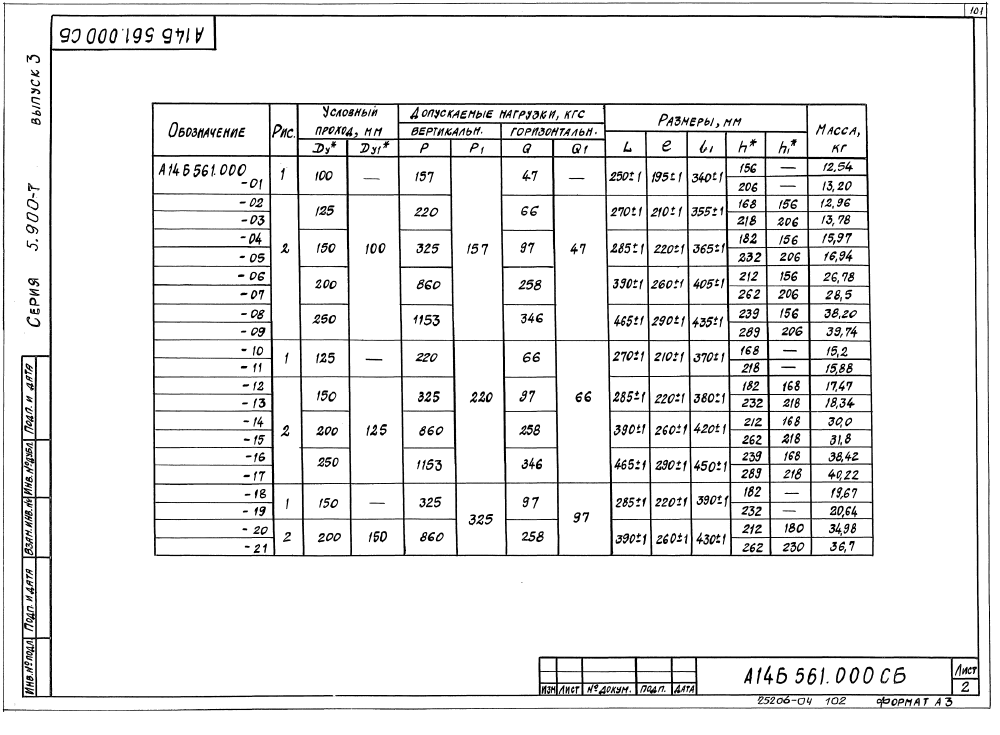 101
А14Б 561.000 СБ
Серия 5.900-7 выпуск 3
Обозначение Рис. Условный проход, мм Допускаемые нагрузки, кгс Размеры, мм Масса, кг
вертикальн. горизонтальн.
Dy* Dy1* P P1 Q Q1 L e l1 h* h1*
А14Б 561.000 1 100 — 157 157 47 — 250±1 195±1 340±1 156 — 12,54
-01 206 — 13,20
-02 2 125 100 220 66 47 270±1 210±1 355±1 168 156 12,96
-03 218 206 13,78
-04 150 325 97 285±1 220±1 365±1 182 156 15,97
-05 232 206 16,94
-06 200 860 258 390±1 260±1 405±1 212 156 26,78
-07 262 206 28,5
-08 250 1153 346 465±1 290±1 435±1 239 156 38,20
-09 289 206 39,74
-10 1 125 — 220 220 66 66 270±1 210±1 370±1 168 — 15,2
-11 218 — 15,88
-12 2 150 125 325 97 285±1 220±1 380±1 182 168 17,47
-13 232 218 18,34
-14 200 860 258 390±1 260±1 420±1 212 168 30,0
-15 262 218 31,8
-16 250 1153 346 465±1 290±1 450±1 239 168 38,42
-17 289 218 40,22
-18 1 150 — 325 325 97 97 285±1 220±1 390±1 182 — 19,67
-19 232 — 20,64
-20 2 200 150 860 258 390±1 260±1 430±1 212 180 34,98
-21 262 230 36,7
Инв.№ подл. Подп. и дата Взам. инв.№ Инв.№ дубл. Подп. и дата
Изм Лист № докум. Подп. Дата
А14Б 561.000 СБ
Лист
2
25206-04 102 Формат А3